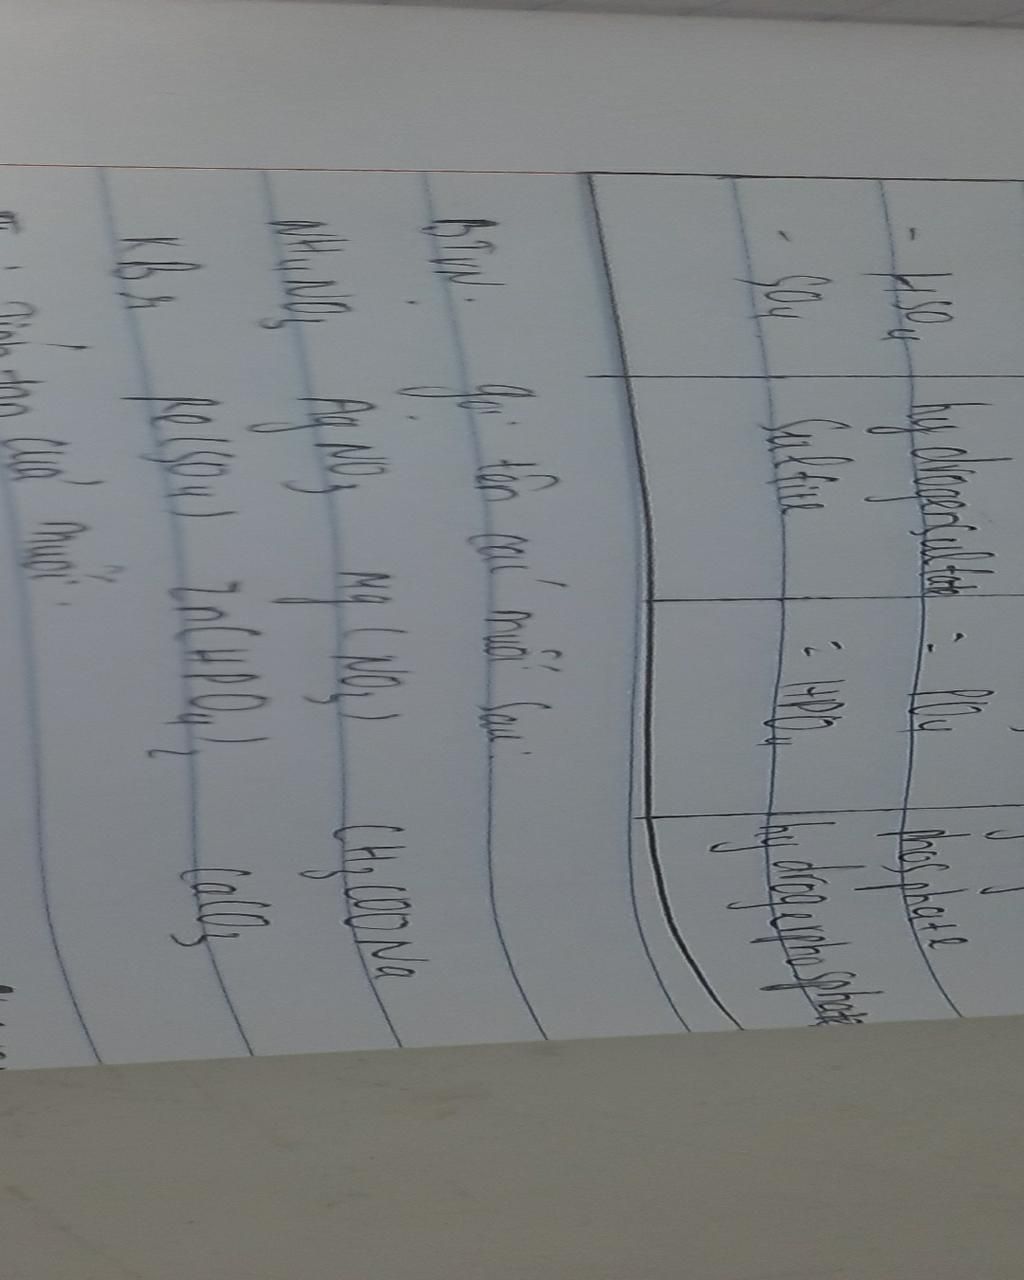 - HSO4 hydrogensulfate = PO4 phosphate
- SO4 Sulfite = HPO4 hydrogenphosphate
BTVN. gọi tên các muối sau:
NH4NO3 AgNO3 Mg(NO3) CH3COONa
KBr Fe(SO4) Zn(HPO4)2 CaCO3
của muối.